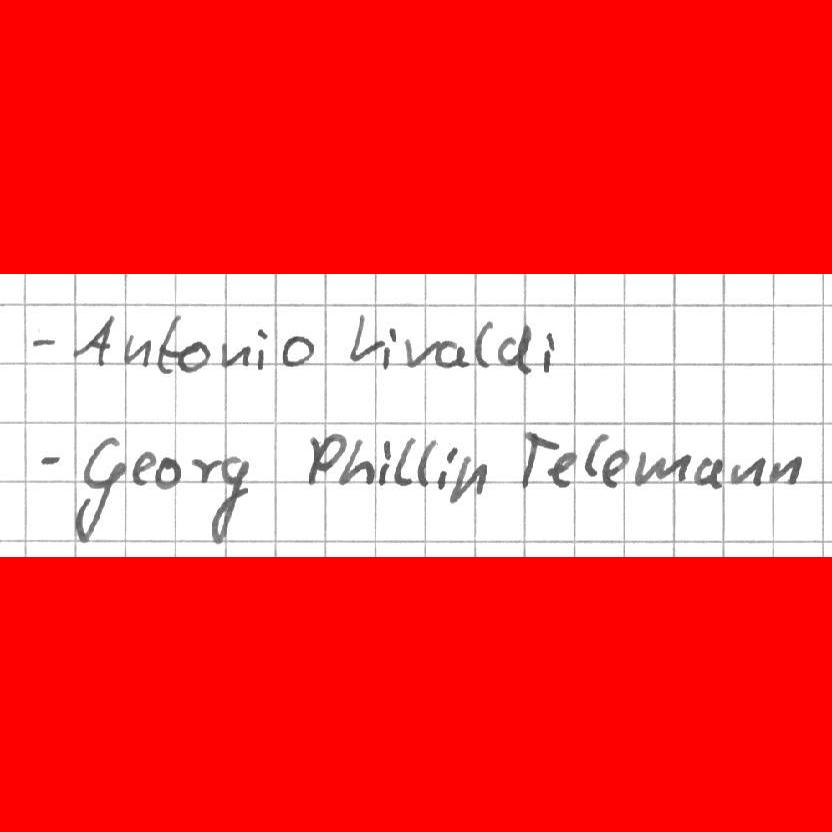 - Antonio Vivaldi
- Georg Phillip Telemann